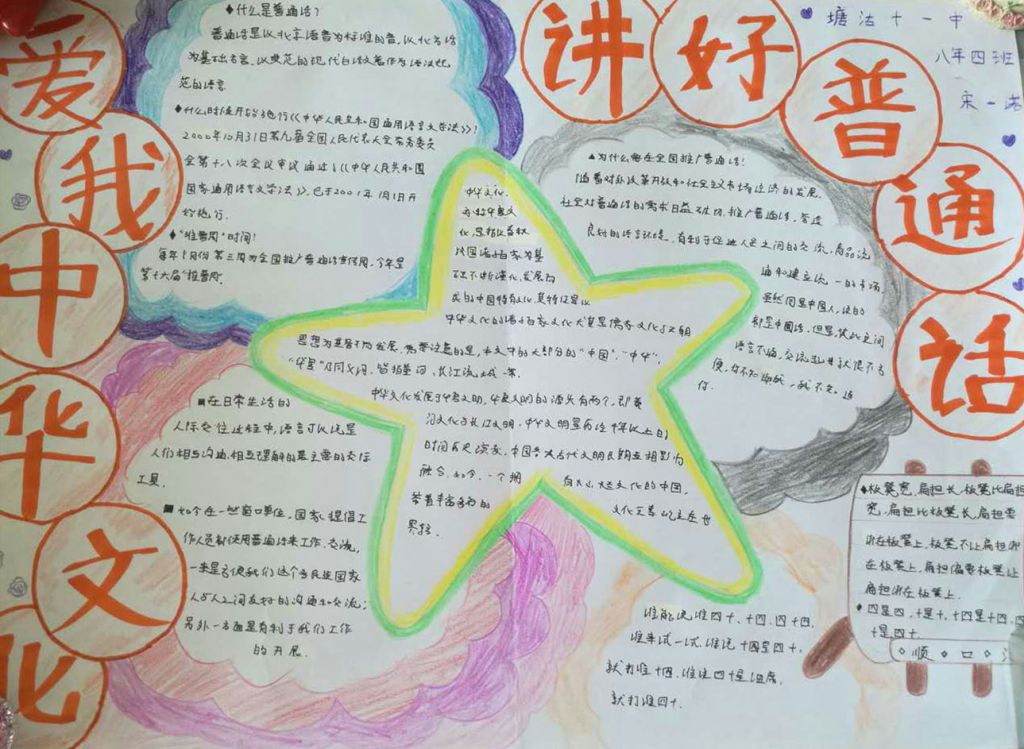 爱我中华文化
讲好普通话
塘沽十一中
八年四班
宋一诺
◆什么是普通话?
普通话是以北京语音为标准的音,以北方话
为基础方言,以典范的现代白话文著作为语法规
范的语言
◆什么时候开始施行《《中华人民共和国通用语言文字法》》!
2000年10月31日第九届全国人民代表大会常务委员
会第十八次会议审议通过《《中华人民共和国
国家通用语言文字法》》,已于2001年1月1日开
始施行.
◆"推普周"时间!
每年9月份第三周为全国推广普通话宣传周,今年是
第十六届"推普周".
▲为什么要在全国推广普通话!
随着对外改革开放和社会主义市场经济的发展,
社会对普通话的需求日益迫切.推广普通话,营造
良好的语言环境,有利于促进人员之间的交流,商品流
通和建立统一的市场
虽然同是中国人,说的
都是中国话,但是,彼此之间
语言不通,交流起来就很不方
便,
中华文化,
亦称华夏文
化,
是指以春秋
战国诸子百家为基
础不断演化、发展而
成的中国特有文化.其特征是以
中华文化的诸子百家文化尤其是儒家文化
思想为基层不同发展,需要注意的是,本文中的大部分的"中国"、"中华"、
"华夏"为同义词,皆指黄河、长江流域一带.
中华文化发展于华夏文明,华夏文明的源头有两个,即黄
河文化与长江文明.中华文明是历经千年以上的
时间历史演变,
融合,如今,一个拥有
文化的中国,
带着丰富多彩的
文化
屹立在世
界之
■在日常生活的
人际交往过程中,语言可以说是
人们相互沟通,相互理解的最主要的交际
工具.
■如今在一些窗口单位,国家提倡工
作人员都使用普通话来工作、交流,
一来是方便我们这个多民族国家
人与人之间友好的沟通和交流;
另外一方面是有利于我们工作
的开展.
谁能说准四十、十四、四十四,
谁来试一试,谁说十四是四十,
就打谁十四,谁说四十是细席,
就打谁四十.
◆板凳宽,扁担长,板凳比扁担
宽,扁担比板凳长,扁担要
绑在板凳上,板凳不让扁担绑
在板凳上,扁担偏要板凳让
扁担绑在板凳上.
◆四是四,十是十,十四是十四,四
十是四十.
◇顺◇口◇